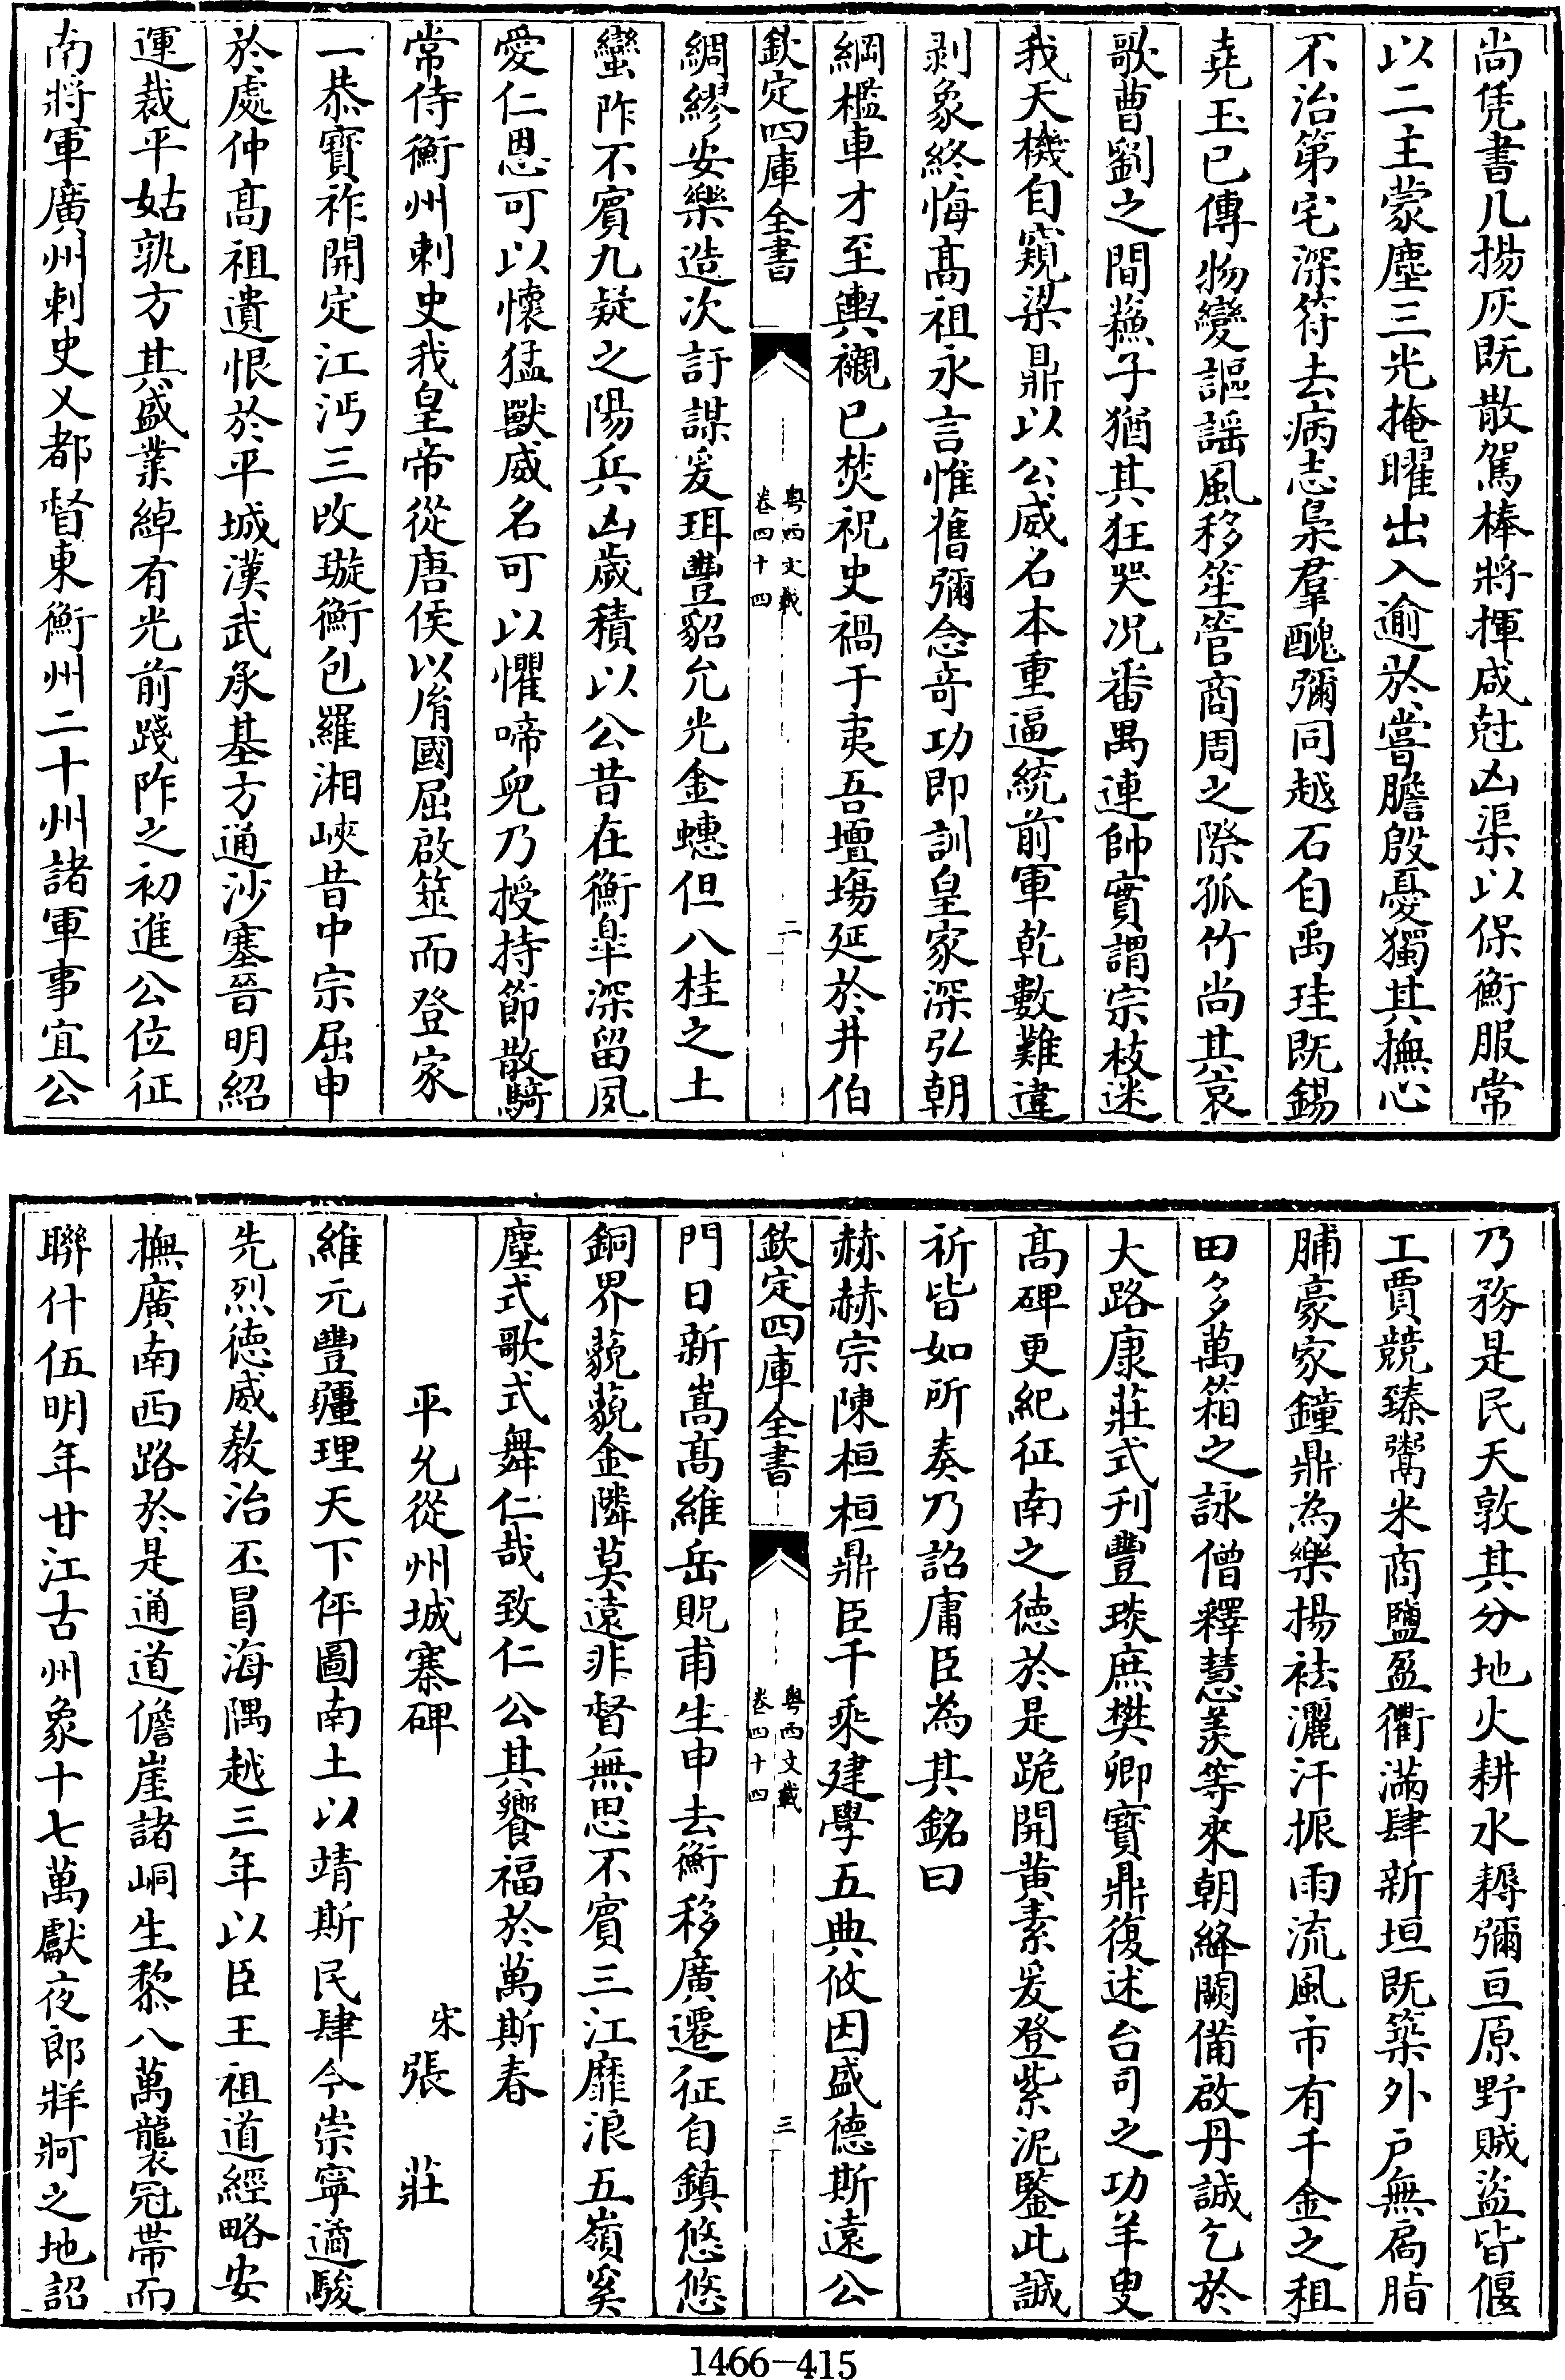 尚凭書几揚灰既散駕棒將揮咸尅凶渠以保衡服常
以二主蒙塵三光掩曜出入逾於嘗膽殷憂獨其撫心
不治第宅深符去病志梟羣醜彌同越石自禹珪既錫
堯玉已傳物變謳謡風移笙管商周之際孤竹尚其哀
歌曹劉之間蘓子猶其狂哭况番禺連帥實謂宗枝迷
我天機自窺梁鼎以公威名本重逼統前軍乾數難違
剥象終悔髙祖永言惟舊彌念竒功即訓皇家深弘朝
綱檻車才至輿襯已焚祝史禍于夷吾壇塲延於井伯
欽定四庫全書
粤西文載
卷四十四
二
綢繆安樂造次訏謀爰珥豐貂允光金蟪但八桂之土
蠻阼不賓九疑之陽兵凶歲積以公昔在衡臯深留夙
愛仁恩可以懷猛獸威名可以懼啼兒乃授持節散騎
常侍衡州刺史我皇帝從唐侯以胤國屈啟筮而登家
一恭寳祚開定江沔三改璇衡包羅湘峽昔中宗屈申
於處仲髙祖遺恨於平城漢武承基方通沙塞晉明紹
運裁平姑孰方其盛業綽有光前踐阼之初進公位征
南將軍廣州刺史乂都督東衡州二十州諸軍事宜公
乃務是民天敦其分地火耕水耨彌亘原野賊盜皆偃
工賈競臻鬻米商鹽盈衢滿肆新垣既築外戸無扃脂
脯豪家鐘鼎為樂揚袪灑汗振雨流風市有千金之租
田多萬箱之詠僧釋慧羡等來朝絳闕備啟丹誠乞於
大路康莊式刋豐琰庶樊卿寳鼎復述台司之功羊叟
髙碑更紀征南之徳於是跪開黄素爰登紫泥鑒此誠
祈皆如所奏乃詔庸臣為其銘曰
赫赫宗陳桓桓鼎臣千乘建學五典攸因盛德斯逺公
欽定四庫全書
粤西文載
卷四十四
三
門日新嵩髙維岳貺甫生申去衡移廣遷征自鎮悠悠
銅界藐藐金隣莫遠非督無思不賓三江靡浪五嶺奚
塵式歌式舞仁哉致仁公其饗福於萬斯春
平允從州城寨碑
宋張莊
維元豐疆理天下伻圖南土以靖斯民肆今崇寧遹駿
先烈徳威敎治丕冒海隅越三年以臣王祖道經略安
撫廣南西路於是通道儋崖諸峒生黎八萬襲冠帶而
聯什伍明年廿江古州象十七萬獻夜郎牂牁之地詔
1466-415